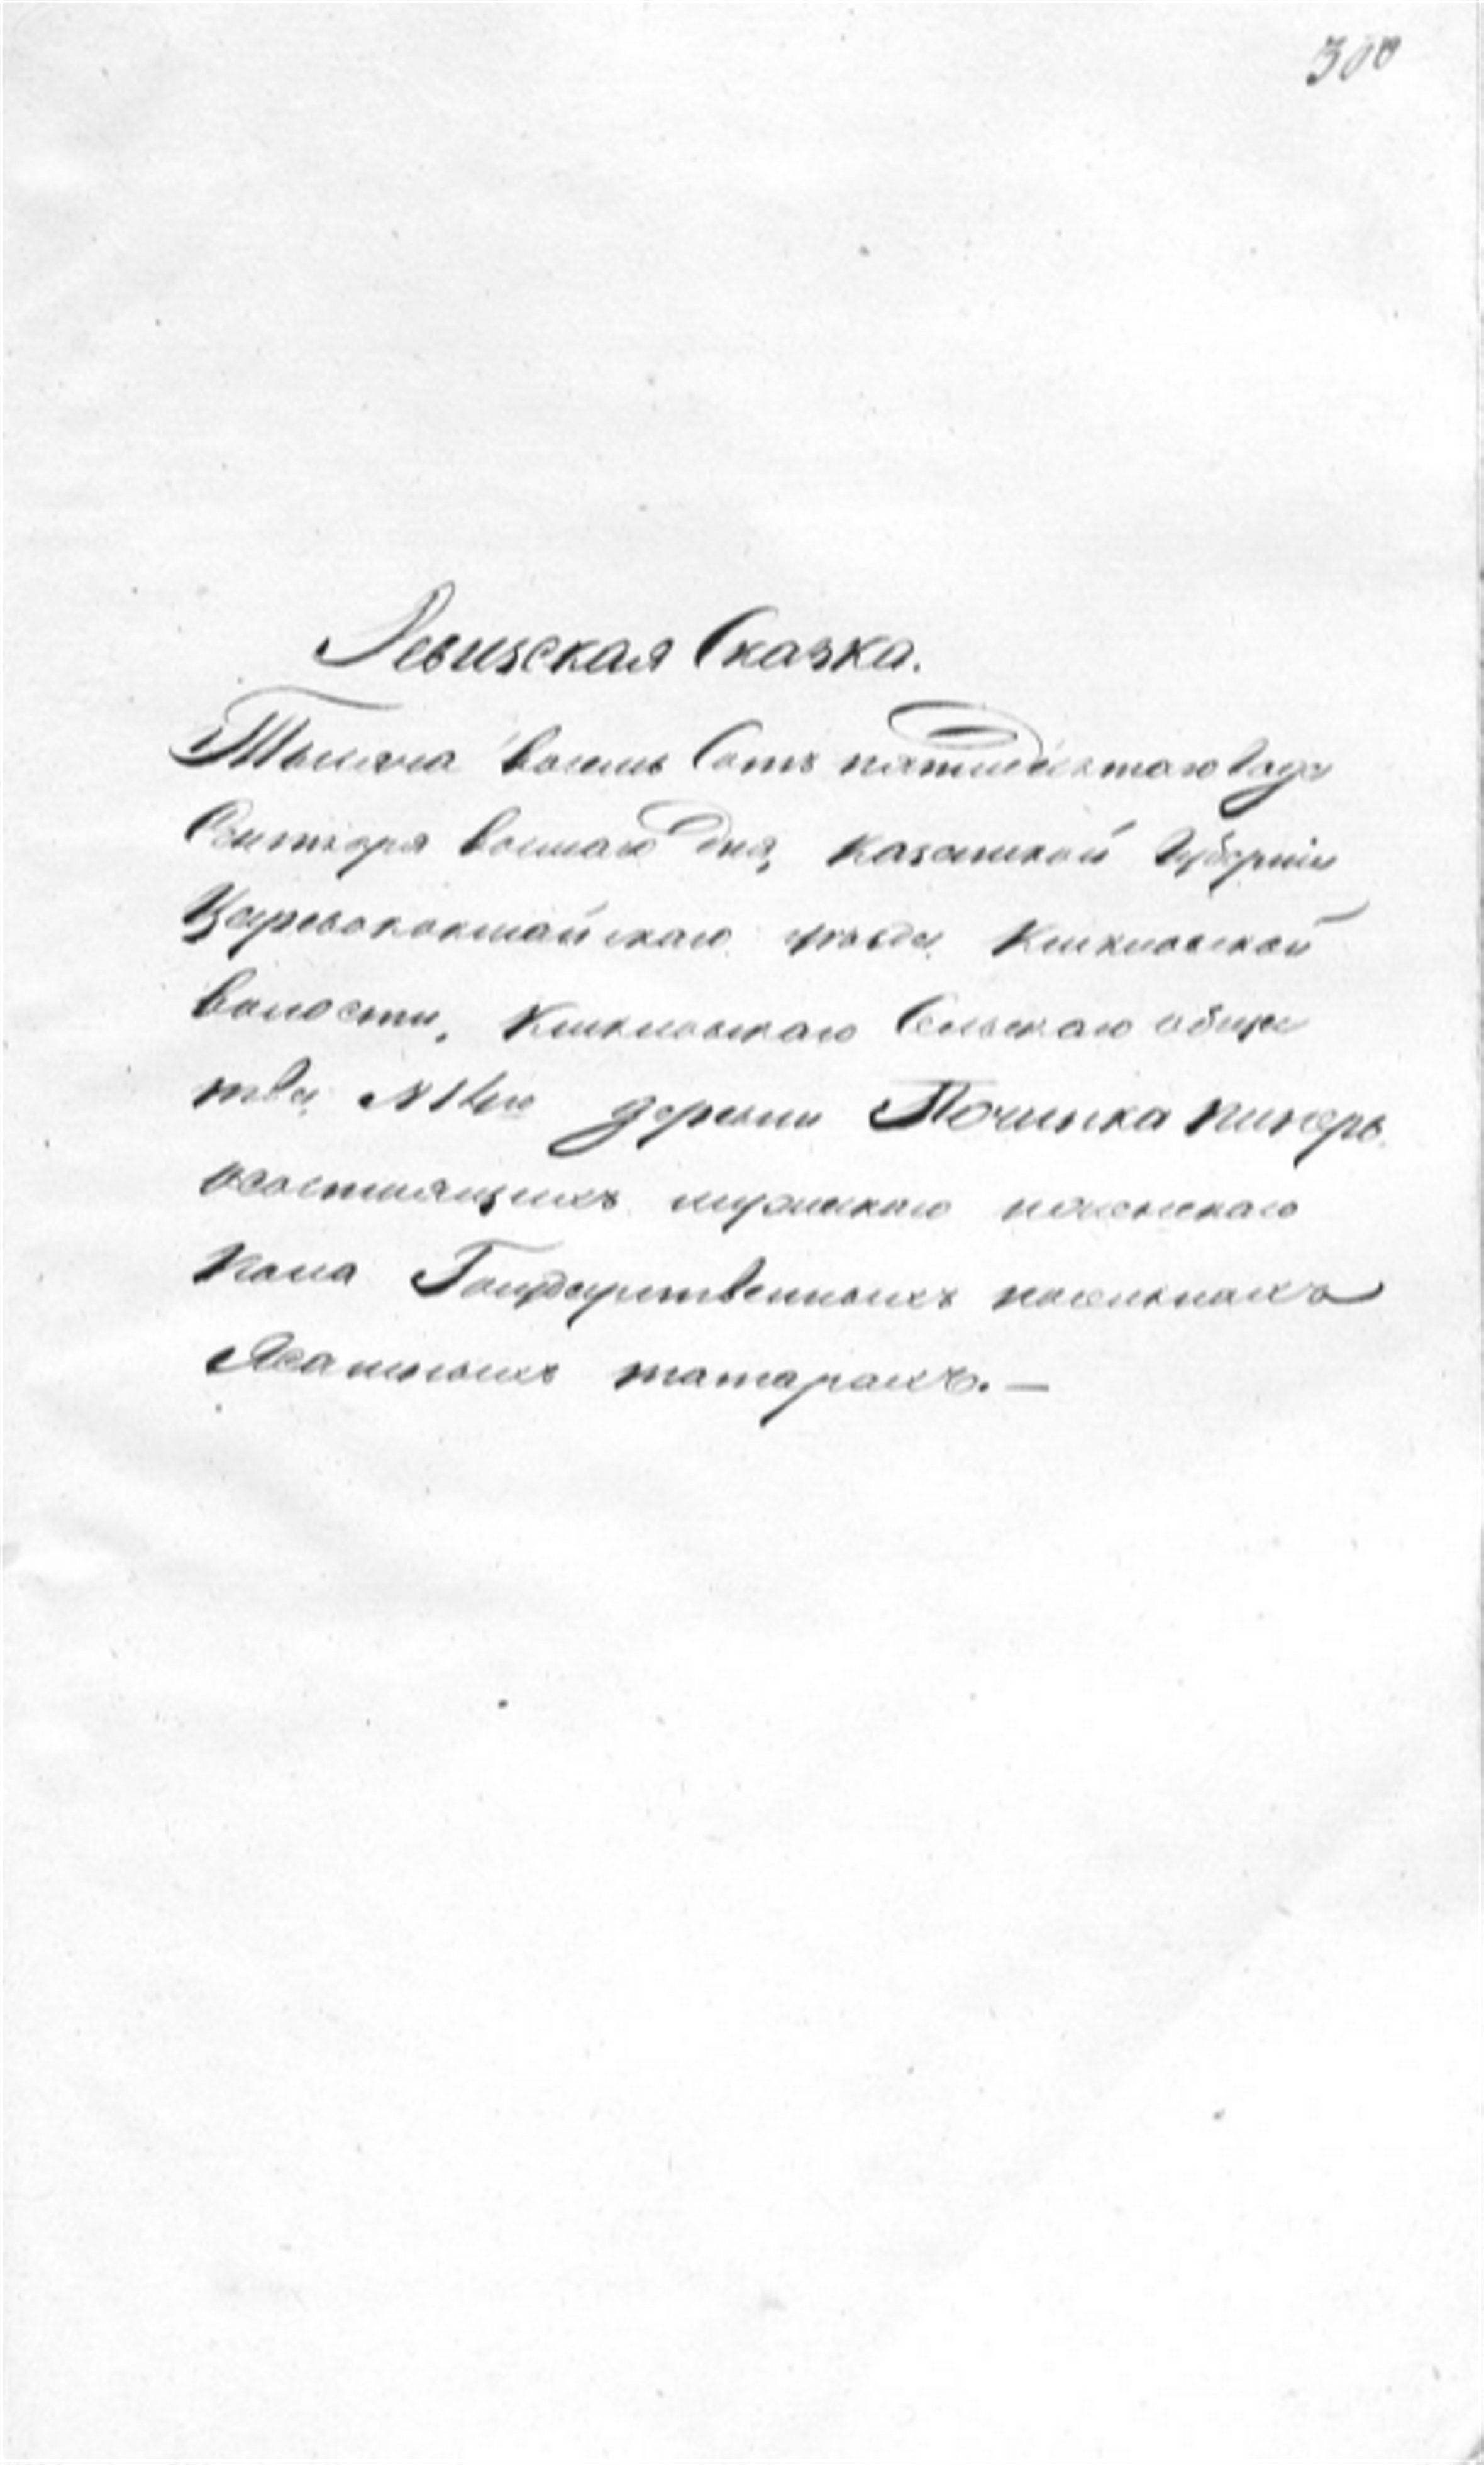 300
Ревизская Сказка.
Тысяча восемь Сотъ пятидесятаго Года
Сентября восмаго дня, Казанской Губерніи
Царевококшайскаго уѣзда, Кшкловской
волости, Кшкловскаго Сельскаго обще
тва деревни Починка Кинерь
осостоящихъ мужскаго и женскаго
пола Государственныхъ поселянахъ
Ясашныхъ татарахъ. —